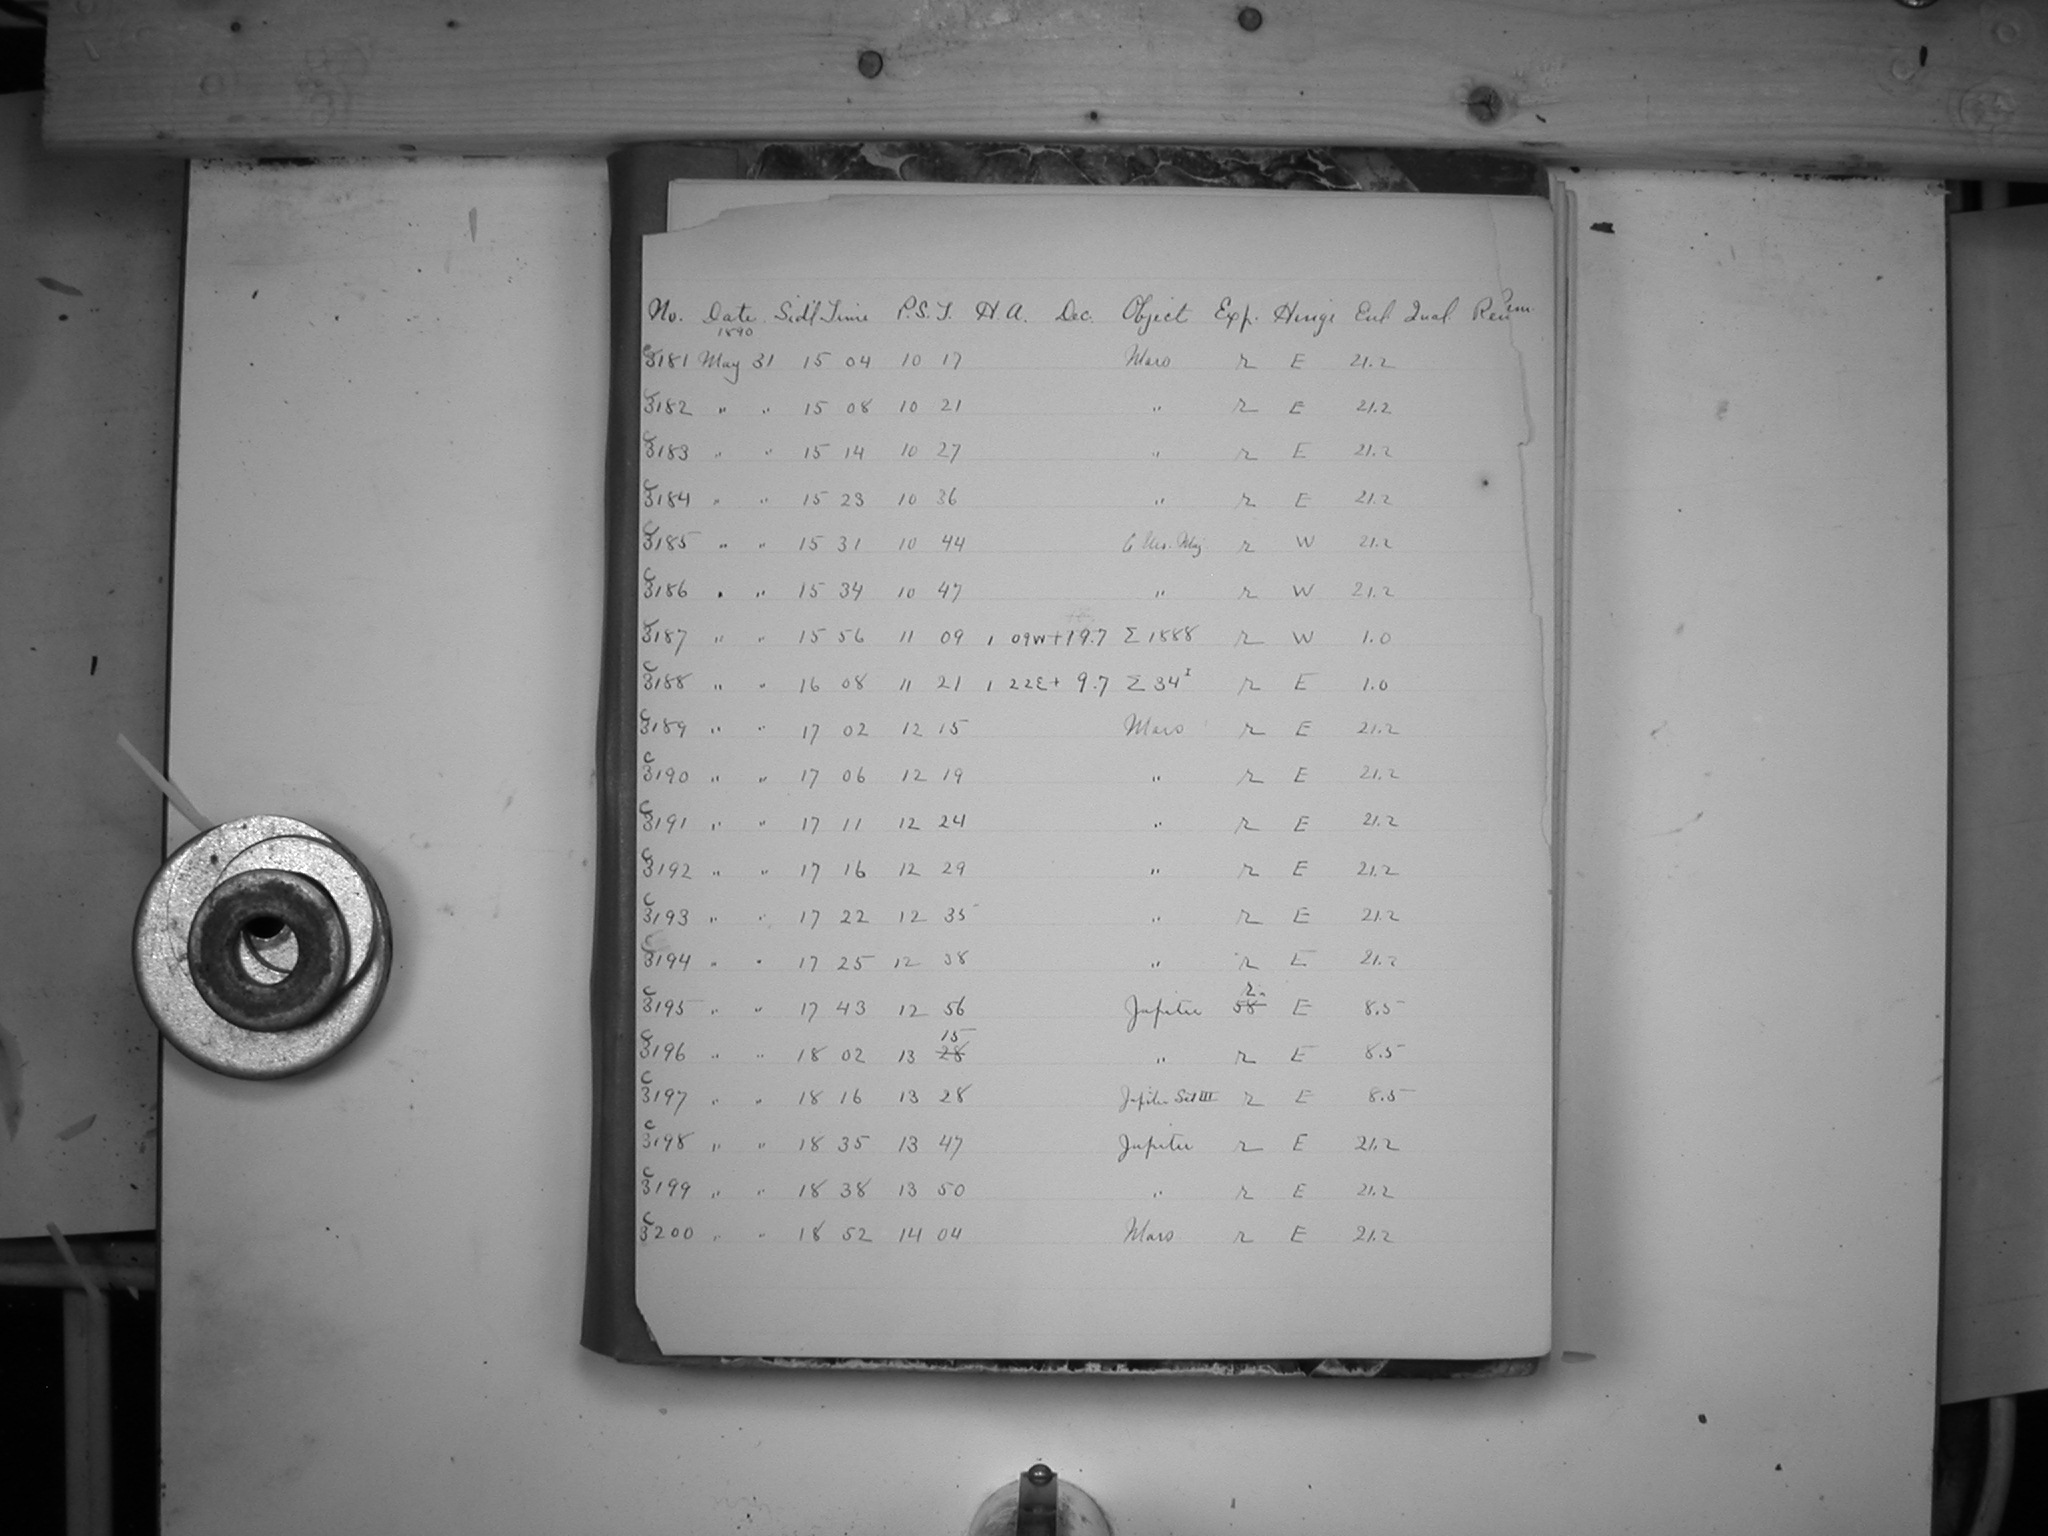 No. Date Sidl Time P.S.T. H A. Dec. Object Exp. Hinge End Qual Rem
1890
C 3181 May 31 15 04 10 17 Mars r E 21.2
C 3182 " " 15 08 10 21 " r E 21.2
C 3183 " " 15 14 10 27 " r E 21.2
C 3184 " " 15 23 10 36 " r E 21.2
C 3185 " " 15 31 10 44 Urs. Maj r W 21.2
C 3186 " " 15 34 10 47 " r W 21.2
C 3187 " " 15 56 11 09 1 09W +19.7 Σ 1888 r W 1.0
C 3188 " " 16 08 11 21 1 22E + 9.7 Σ 34 I r E 1.0
C 3189 " " 17 02 12 15 Mars r E 21.2
C 3190 " " 17 06 12 19 " r E 21.2
C 3191 " " 17 11 12 24 " r E 21.2
C 3192 " " 17 16 12 29 " r E 21.2
C 3193 " " 17 22 12 35 " r E 21.2
C 3194 " " 17 25 12 38 " r E 21.2
C 3195 " " 17 43 12 56 Jupiter 58 r E 8.5
C 3196 " " 18 02 13 28 15 " r E 8.5
C 3197 " " 18 16 13 28 Jupiter Sat III r E 8.5
C 3198 " " 18 35 13 47 Jupiter r E 21.2
C 3199 " " 18 38 13 50 " r E 21.2
C 3200 " " 18 52 14 04 Mars r E 21.2